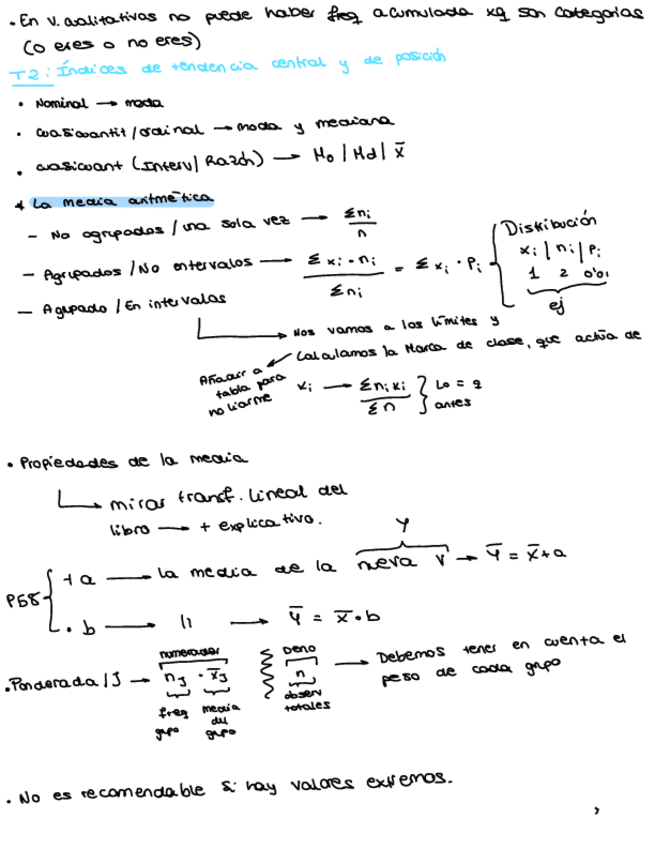 · En V. cualitativas no puede haber freq acumulada xq son categorías
(o eres o no eres)
T2: Índices de tendencia central y de posición
· Nominal → moda
· Cuasicuantit/ordinal → moda y mediana
· cuasicuant (Interv/Razón) → Mo | Md | x̄
* La media aritmética
- No agrupados / una sola vez → Σni / n
- Agrupados / No intervalos → Σ xi · ni / Σni = Σ xi · Pi { Distribución
xi | ni | Pi
1 2 0'01
ej
- Agupado / En intervalos
→ Nos vamos a los límites y
Calculamos la Marca de clase, que actúa de
Añadir a tabla para no liarme
xi → Σni xi / Σn } Lo = q antes
· Propiedades de la media
→ mirar transf. lineal del
libro → + explicativo.
Y
P58 { + a → la media de la nueva V → Ȳ = X̄ + a
· b → 11 → Ȳ = X̄ · b
· Ponderada / J → numerador nJ · x̄J Deno n → Debemos tener en cuenta el
peso de cada grupo
freq grupo media del grupo observ totales
· No es recomendable si hay valores extremos.